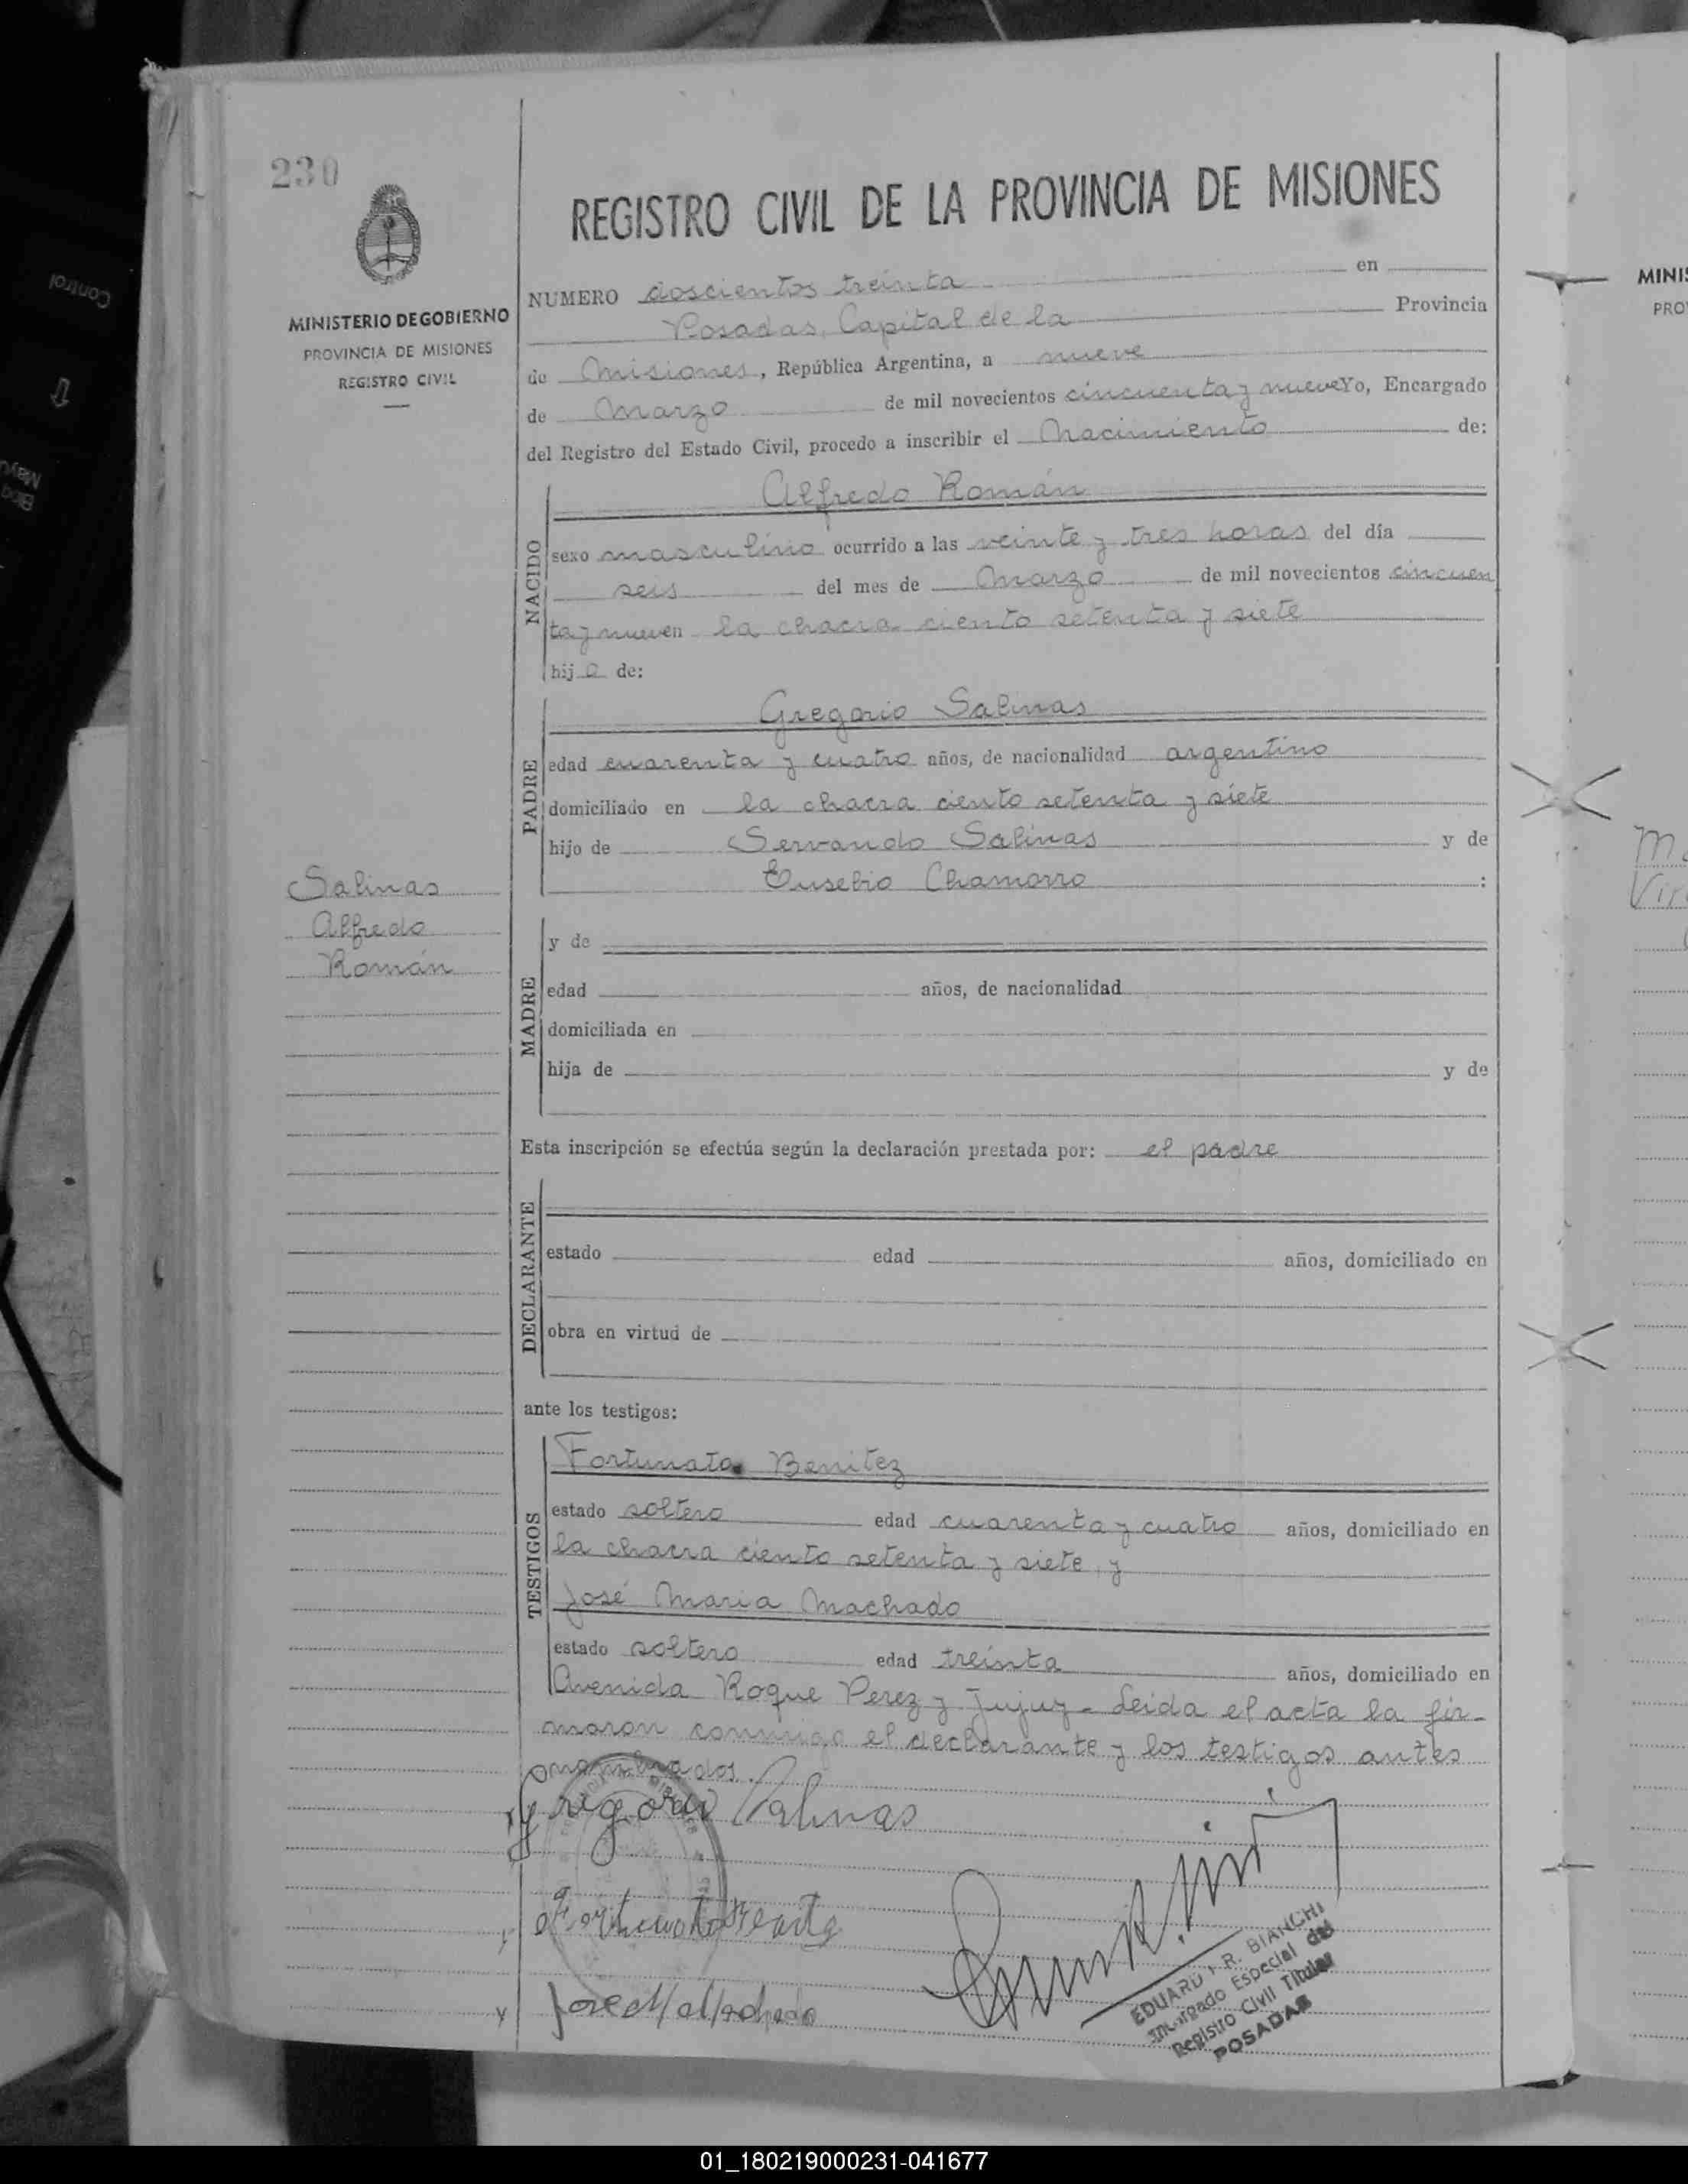 230
REGISTRO CIVIL DE LA PROVINCIA DE MISIONES
MINISTERIO DE GOBIERNO
PROVINCIA DE MISIONES
REGISTRO CIVIL
NUMERO doscientos treinta en
Posadas, Capital de la Provincia
de Misiones, República Argentina, a nueve
de Marzo de mil novecientos cincuenta y nueve Yo, Encargado
del Registro del Estado Civil, procedo a inscribir el Nacimiento de:
NACIDO
Alfredo Román
sexo masculino ocurrido a las veinte y tres horas del día
seis del mes de Marzo de mil novecientos cincuen
ta y nueve en la chacra ciento setenta y siete
hijo de:
PADRE
Gregorio Salinas
edad cuarenta y cuatro años, de nacionalidad argentino
domiciliado en la chacra ciento setenta y siete
hijo de Servando Salinas y de
Eusebio Chamorro :
Salinas
Alfredo
Román
MADRE
y de
edad años, de nacionalidad
domiciliada en
hija de y de
Esta inscripción se efectúa según la declaración prestada por: el padre
DECLARANTE
estado edad años, domiciliado en
obra en virtud de
ante los testigos:
TESTIGOS
Fortunato Benitez
estado soltero edad cuarenta y cuatro años, domiciliado en
la chacra ciento setenta y siete, y
José Maria Machado
estado soltero edad treinta años, domiciliado en
Avenida Roque Perez y Jujuy - Leida el acta la fir-
maron conmigo el declarante y los testigos antes
nombrados.
Gregorio Salinas
Jose M Machado
EDUARDO R. BIANCHI
Encargado Especial del
Registro Civil Titular
POSADAS
MINIS
PRO
Control
01_180219000231-041677